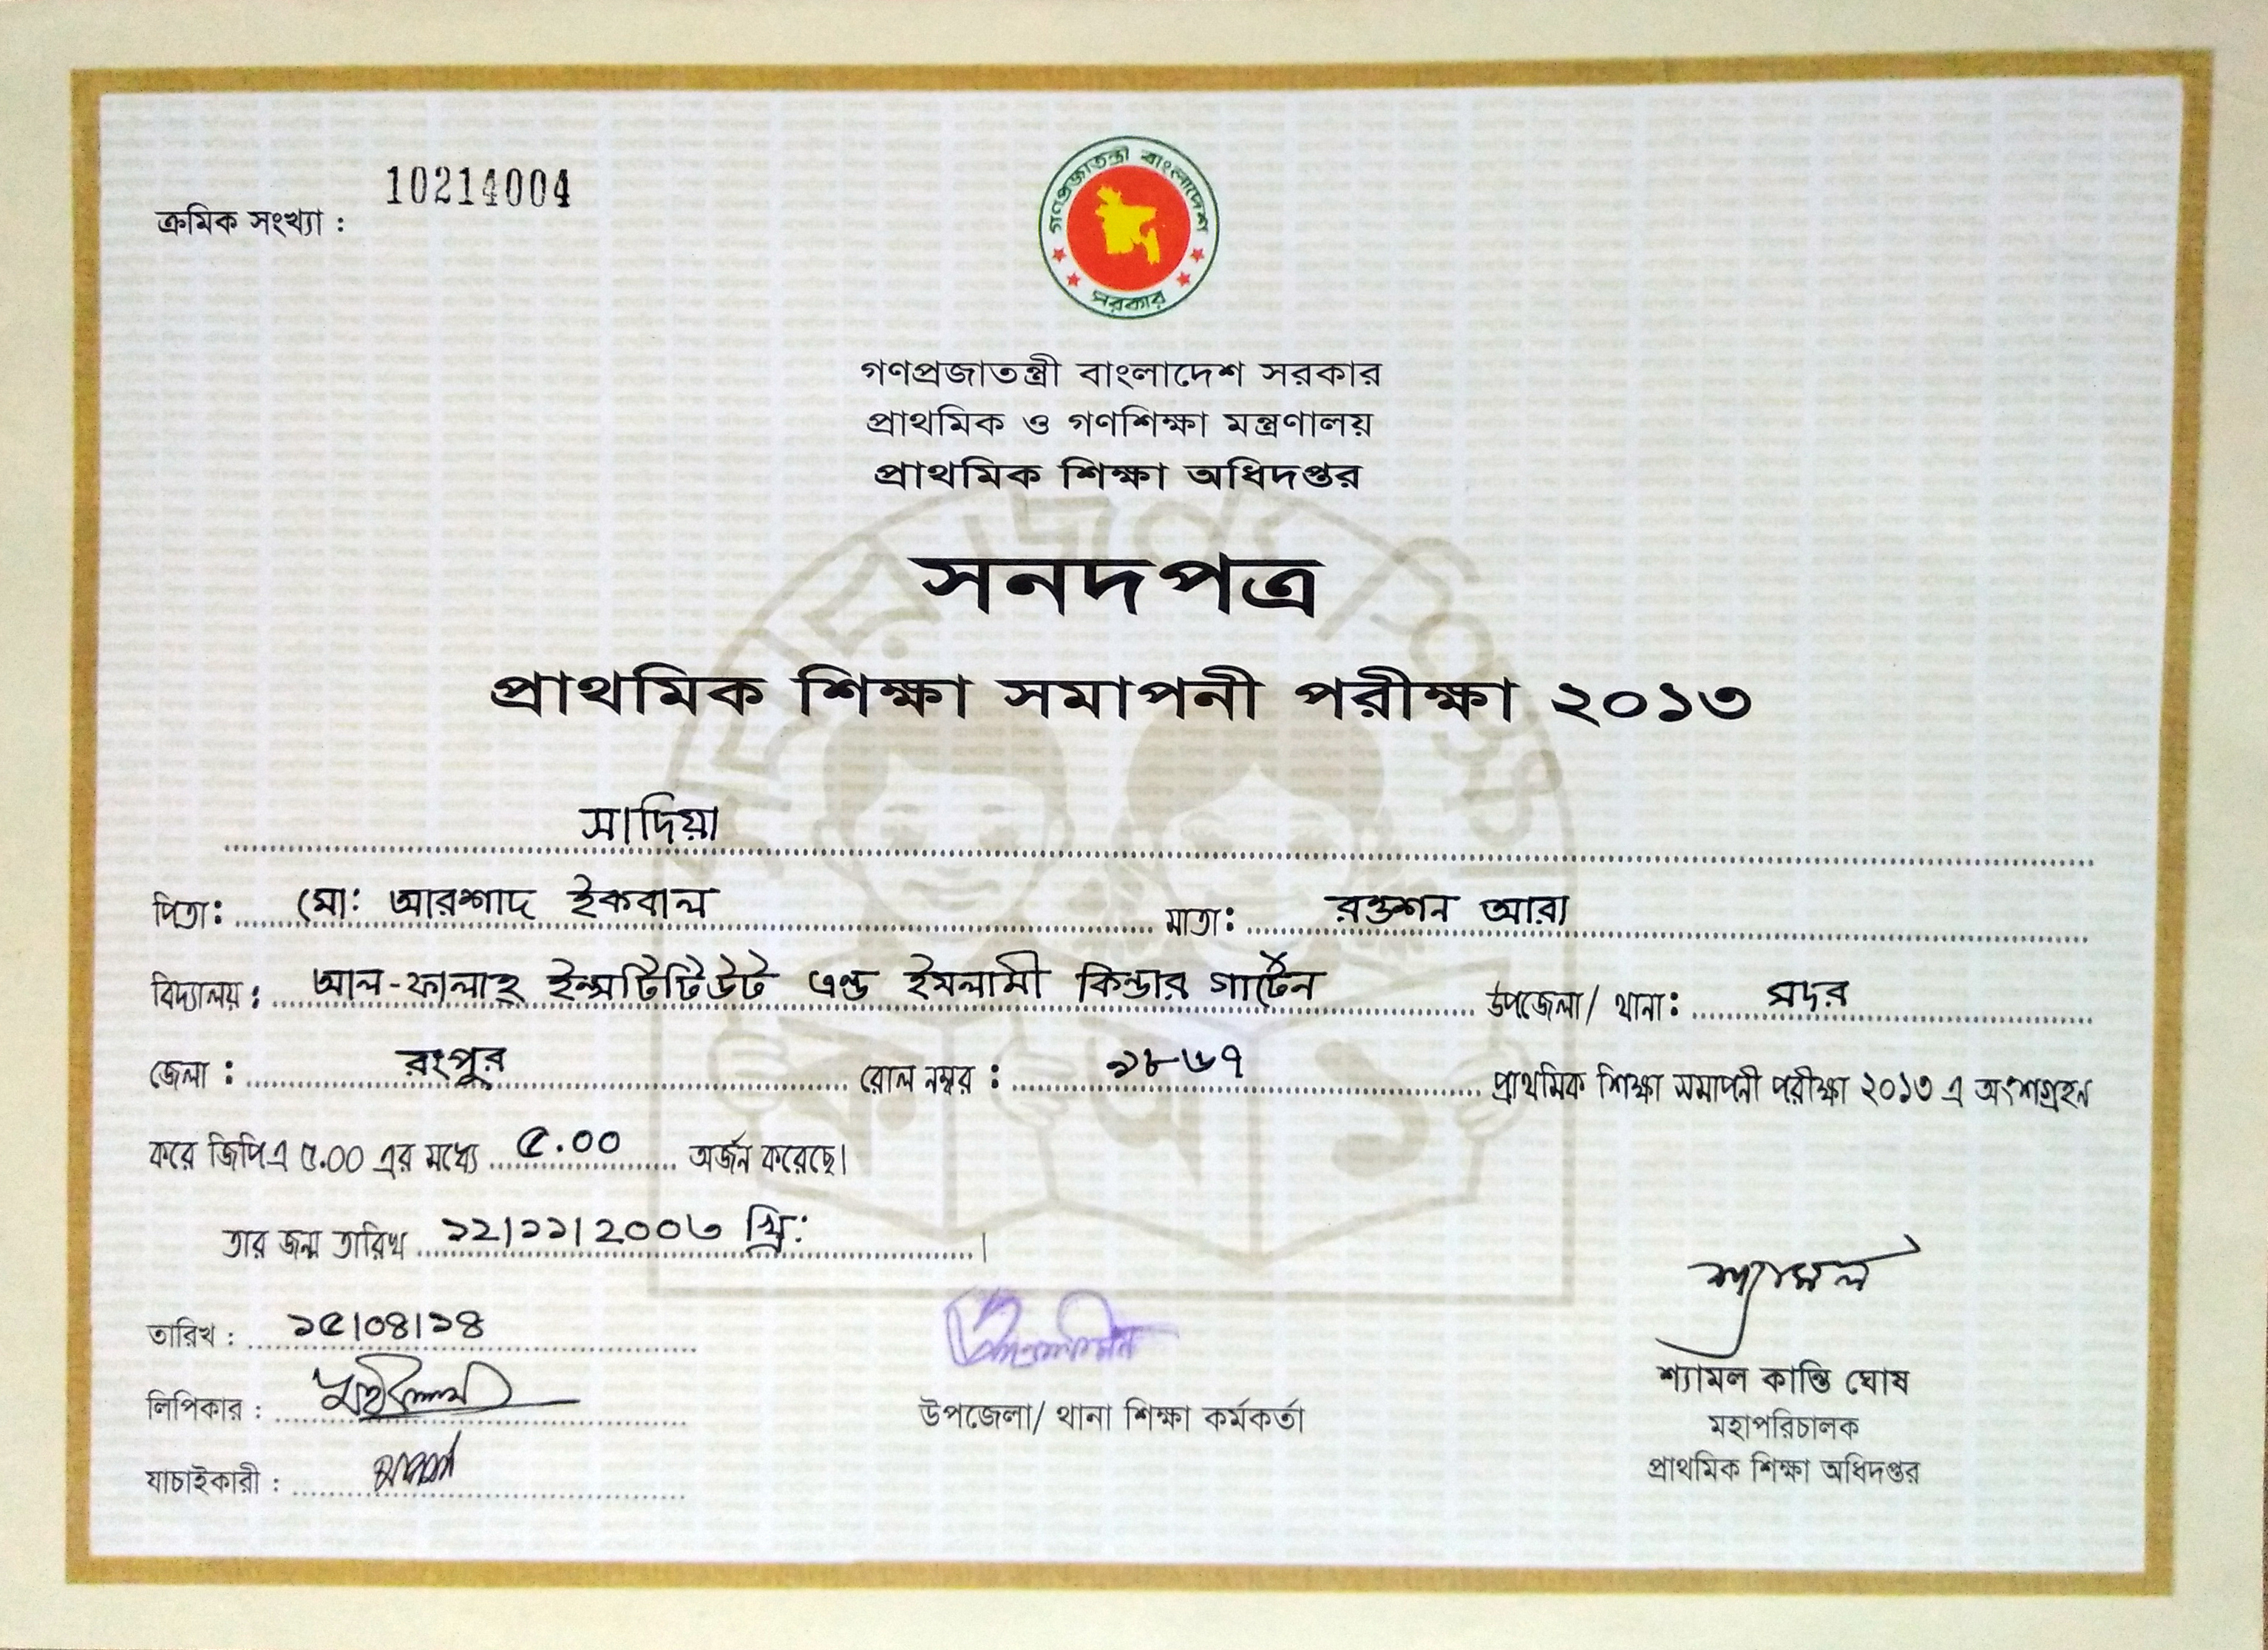 ক্রমিক সংখ্যা : 10214004
গণপ্রজাতন্ত্রী বাংলাদেশ সরকার
গণপ্রজাতন্ত্রী বাংলাদেশ সরকার
প্রাথমিক ও গণশিক্ষা মন্ত্রণালয়
প্রাথমিক শিক্ষা অধিদপ্তর
সনদপত্র
প্রাথমিক শিক্ষা সমাপনী পরীক্ষা ২০১৩
সাদিয়া
পিতা: মো: আরশাদ ইকবাল মাতা: রওশন আরা
বিদ্যালয় : আল-ফালাহ্ ইন্সটিটিউট এন্ড ইসলামী কিন্ডার গার্টেন উপজেলা/ থানা: সদর
জেলা : রংপুর রোল নম্বর : ১৮৬৭ প্রাথমিক শিক্ষা সমাপনী পরীক্ষা ২০১৩ এ অংশগ্রহন
করে জিপিএ ৫.০০ এর মধ্যে ৫.০০ অর্জন করেছে।
তার জন্ম তারিখ ১২/১১/২০০৩ খ্রি: ।
তারিখ : ১৫/০৪/১৪
শ্যামল
লিপিকার :
উপজেলা/ থানা শিক্ষা কর্মকর্তা
শ্যামল কান্তি ঘোষ
মহাপরিচালক
যাচাইকারী :
প্রাথমিক শিক্ষা অধিদপ্তর